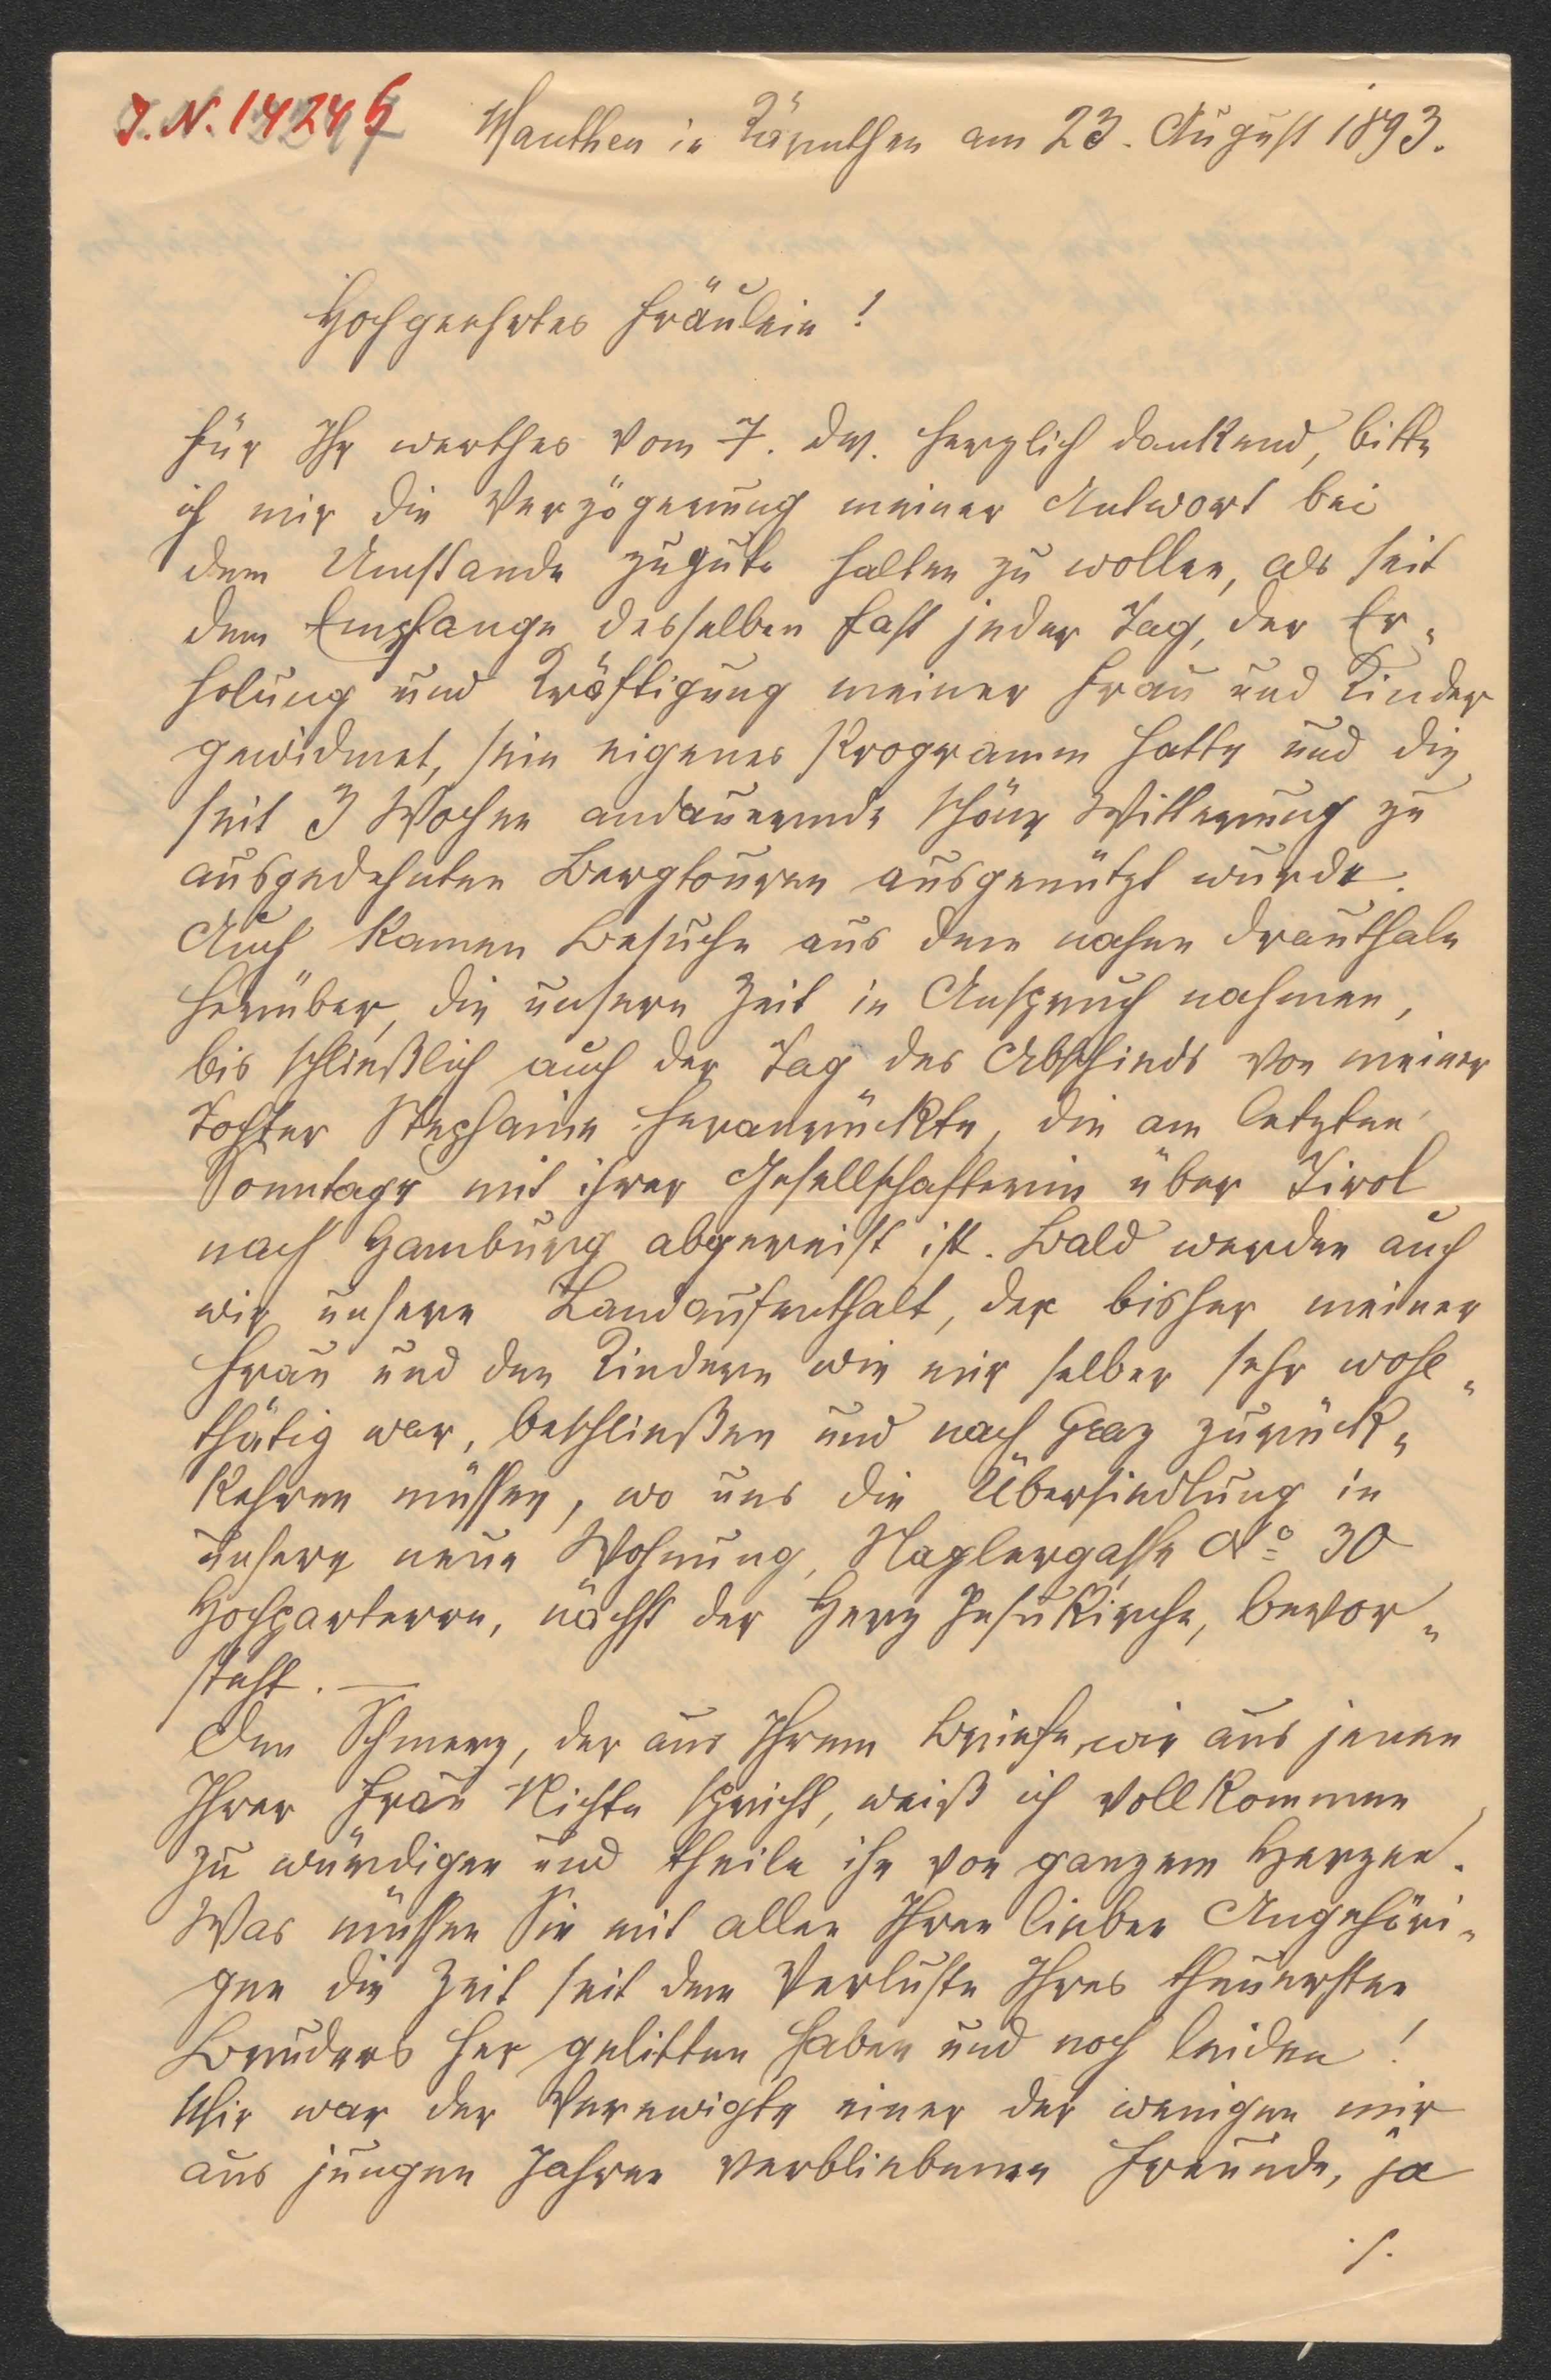 J. N. 14246
Mauthen in Kärnthen am 23. August 1893.
Hochgeehrtes Fräulein!
Für Ihr werthes vom 7. ds. herzlich dankend, bitte
ich mir die Verzögerung meiner Antwort bei
dem Umstande zugute halten zu wollen, als seit
dem Empfange desselben fast jeder Tag, der Er-
holung und Kräftigung meiner Frau und Kinder
gewidmet, sein eigenes Programm hatte und die
seit 3 Wochen andauernde schöne Witterung zu
ausgedehnten Bergtouren ausgenützt wurde.
Auch kamen Besuche aus dem nahen Drauthale
herüber, die unsere Zeit in Anspruch nahmen,
bis schließlich auch der Tag des Abschieds von meiner
Tochter Stephanie heranrückte, die am letzten
Sonntage mit ihrer Gesellschafterin über Tirol
nach Hamburg abgereist ist. Bald werden auch
wir unseren Landaufenthalt, der bisher meiner
Frau und den Kindern wie mir selber sehr wohl-
thätig war, beschließen und nach Graz zurück-
kehren müssen, wo uns die Übersiedlung in
unsere neue Wohnung, Naglergasse No 30
Hochparterre, nächst der Herz Jesu Kirche, bevor-
steht. —
Den Schmerz, der aus Ihrem Briefe, wie aus jenen
Ihrer Frau Nichte spricht, weiß ich vollkommen
zu würdigen und theile ihn von ganzem Herzen.
Was müssen Sie mit allen Ihren lieben Angehöri-
gen die Zeit seit dem Verluste Ihres theuersten
Bruders her gelitten haben und noch leiden!
Mir war der Verewigte einer der wenigen mir
aus jungen Jahren verbliebenen Freunde, ja
./.